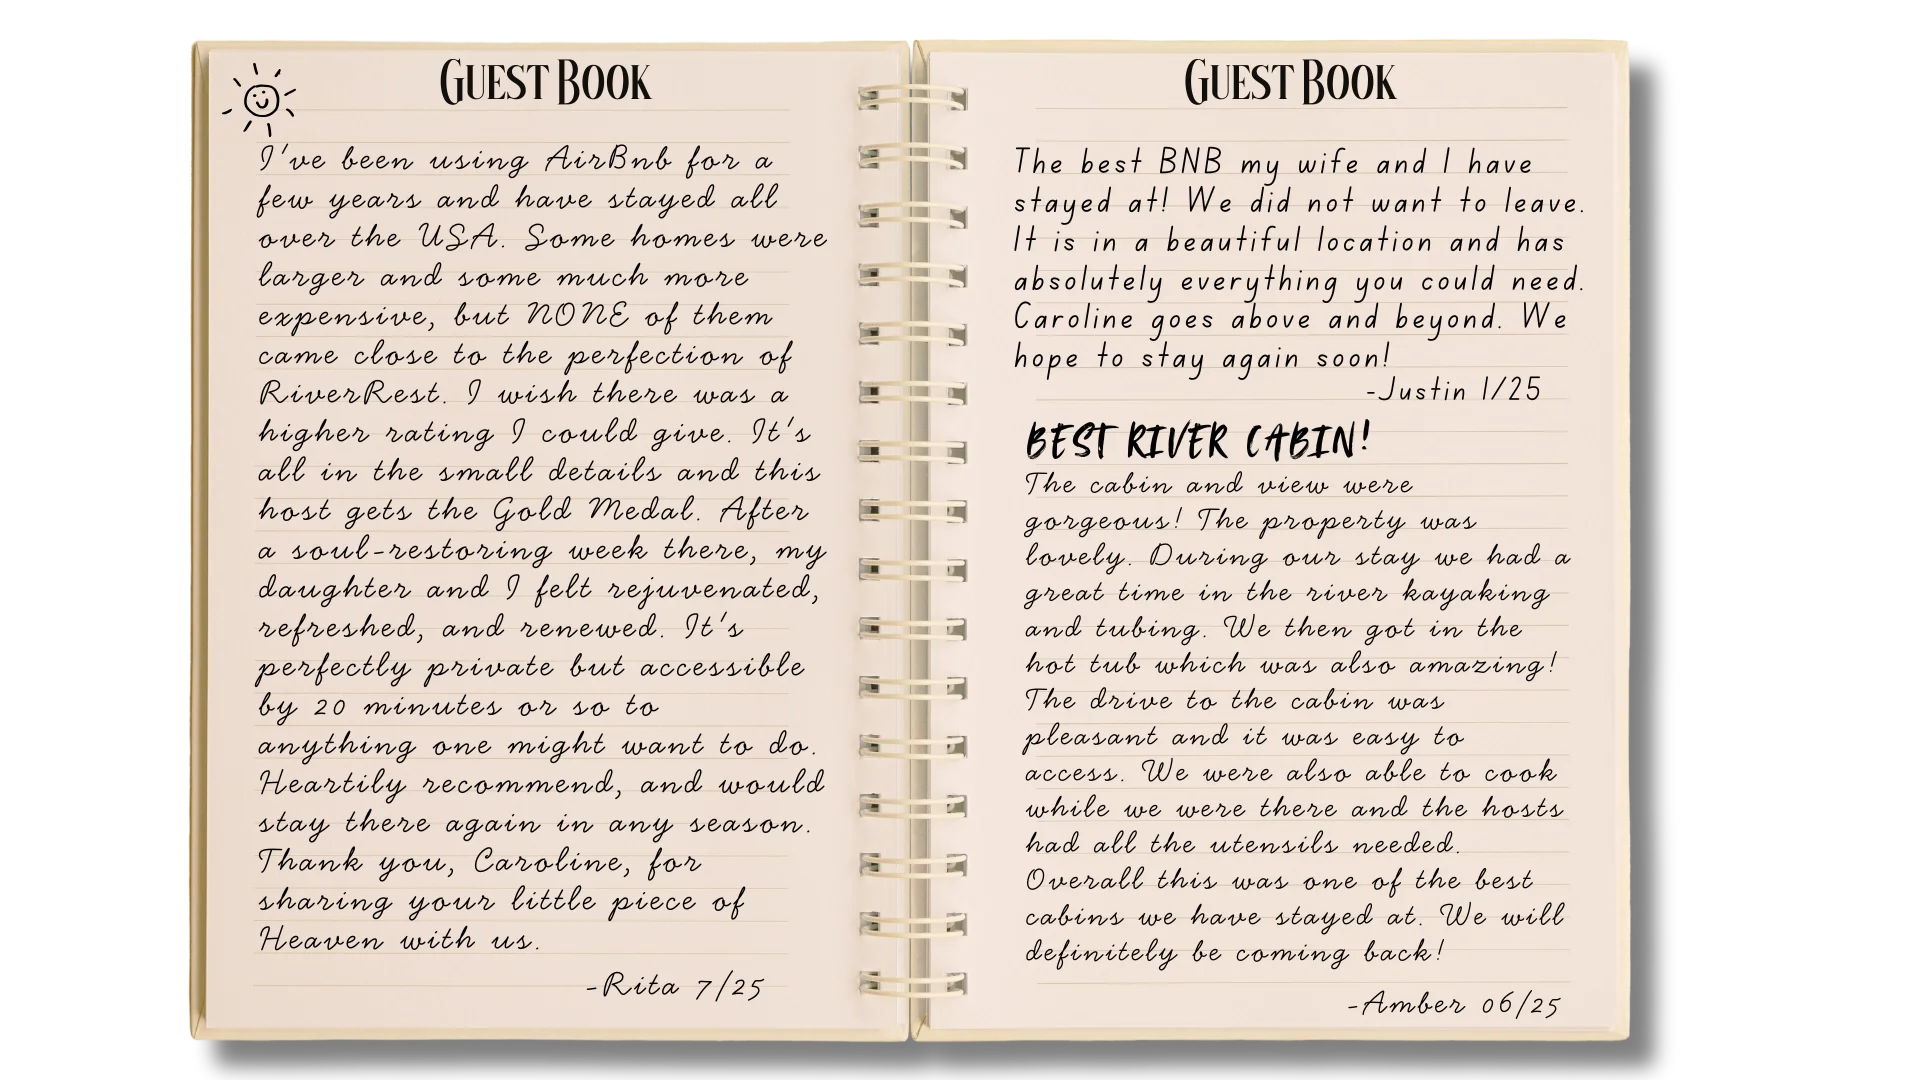 GUEST BOOK
I've been using AirBnb for a
few years and have stayed all
over the USA. Some homes were
larger and some much more
expensive, but NONE of them
came close to the perfection of
RiverRest. I wish there was a
higher rating I could give. It's
all in the small details and this
host gets the Gold Medal. After
a soul-restoring week there, my
daughter and I felt rejuvenated,
refreshed, and renewed. It's
perfectly private but accessible
by 20 minutes or so to
anything one might want to do.
Heartily recommend, and would
stay there again in any season.
Thank you, Caroline, for
sharing your little piece of
Heaven with us.
-Rita 7/25
GUEST BOOK
The best BNB my wife and I have
stayed at! We did not want to leave.
It is in a beautiful location and has
absolutely everything you could need.
Caroline goes above and beyond. We
hope to stay again soon!
-Justin 1/25
BEST RIVER CABIN!
The cabin and view were
gorgeous! The property was
lovely. During our stay we had a
great time in the river kayaking
and tubing. We then got in the
hot tub which was also amazing!
The drive to the cabin was
pleasant and it was easy to
access. We were also able to cook
while we were there and the hosts
had all the utensils needed.
Overall this was one of the best
cabins we have stayed at. We will
definitely be coming back!
-Amber 06/25